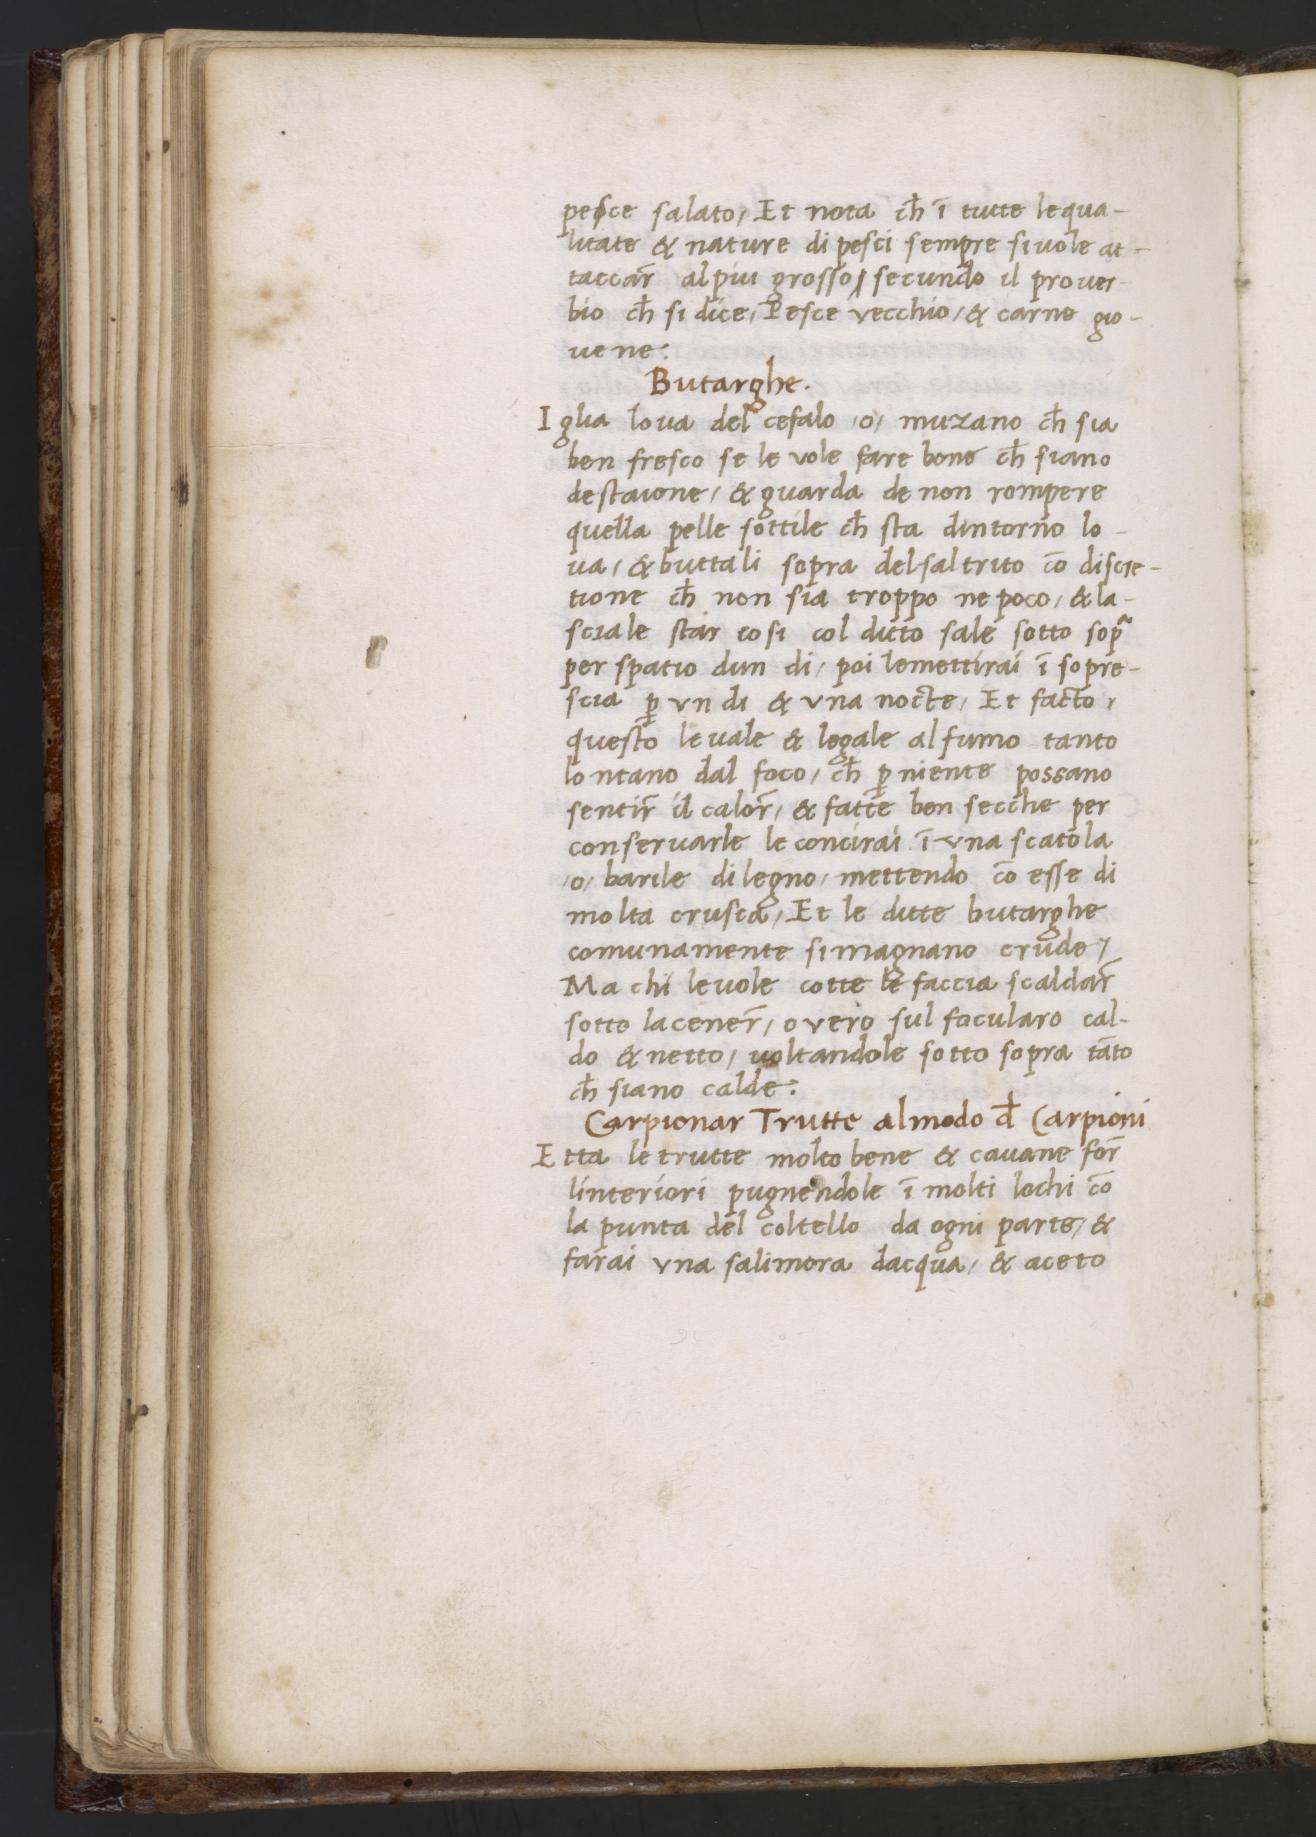 pesce salato, Et nota ch̄ ī tutte lequa-
litate & nature di pesci sempre siuole at-
taccar̄ alpiu grosso, secundo il prouer-
bio ch̄ si dice, Pesce vecchio, & carne gio-
uene:
Butarghe.
Iglia loua del cefalo /o/ muzano ch̄ sia
ben fresco se le vole fare bone ch̄ siano
destaione, & guarda de non rompere
quella pelle sottile ch̄ sta dintorno lo-
ua, & buttali sopra delsaltrito cō discre-
tione ch̄ non sia troppo ne poco, & la-
sciale star cosi col ditto sale sotto sopᵃ
per spatio dun di, poi lemettirai ī sopre-
scia ꝑ vn di & vna nocte, Et facto,
questo leuale & legale alfumo tanto
lontano dal foco, ch̄ ꝑ niente possano
sentir̄ il calor̄, & fatte ben secche per
conseruarle le concirai ī vna scatola
/o/ barile di legno, mettendo cō esse di
molta crusca, Et le ditte butarghe
comunamente simagnano crude,
Ma chi leuole cotte le faccia scaldar̄
sotto lacener̄, overo sul focularo cal-
do & netto, uoltandole sotto sopra tāto
ch̄ siano calde:
Carpionar Trutte almodo đ Carpioni
Etta le trutte molto bene & cauane for̄
linteriori pugnendole ī molti lochi cō
la punta del coltello da ogni parte, &
farai vna salimora dacqua, & aceto